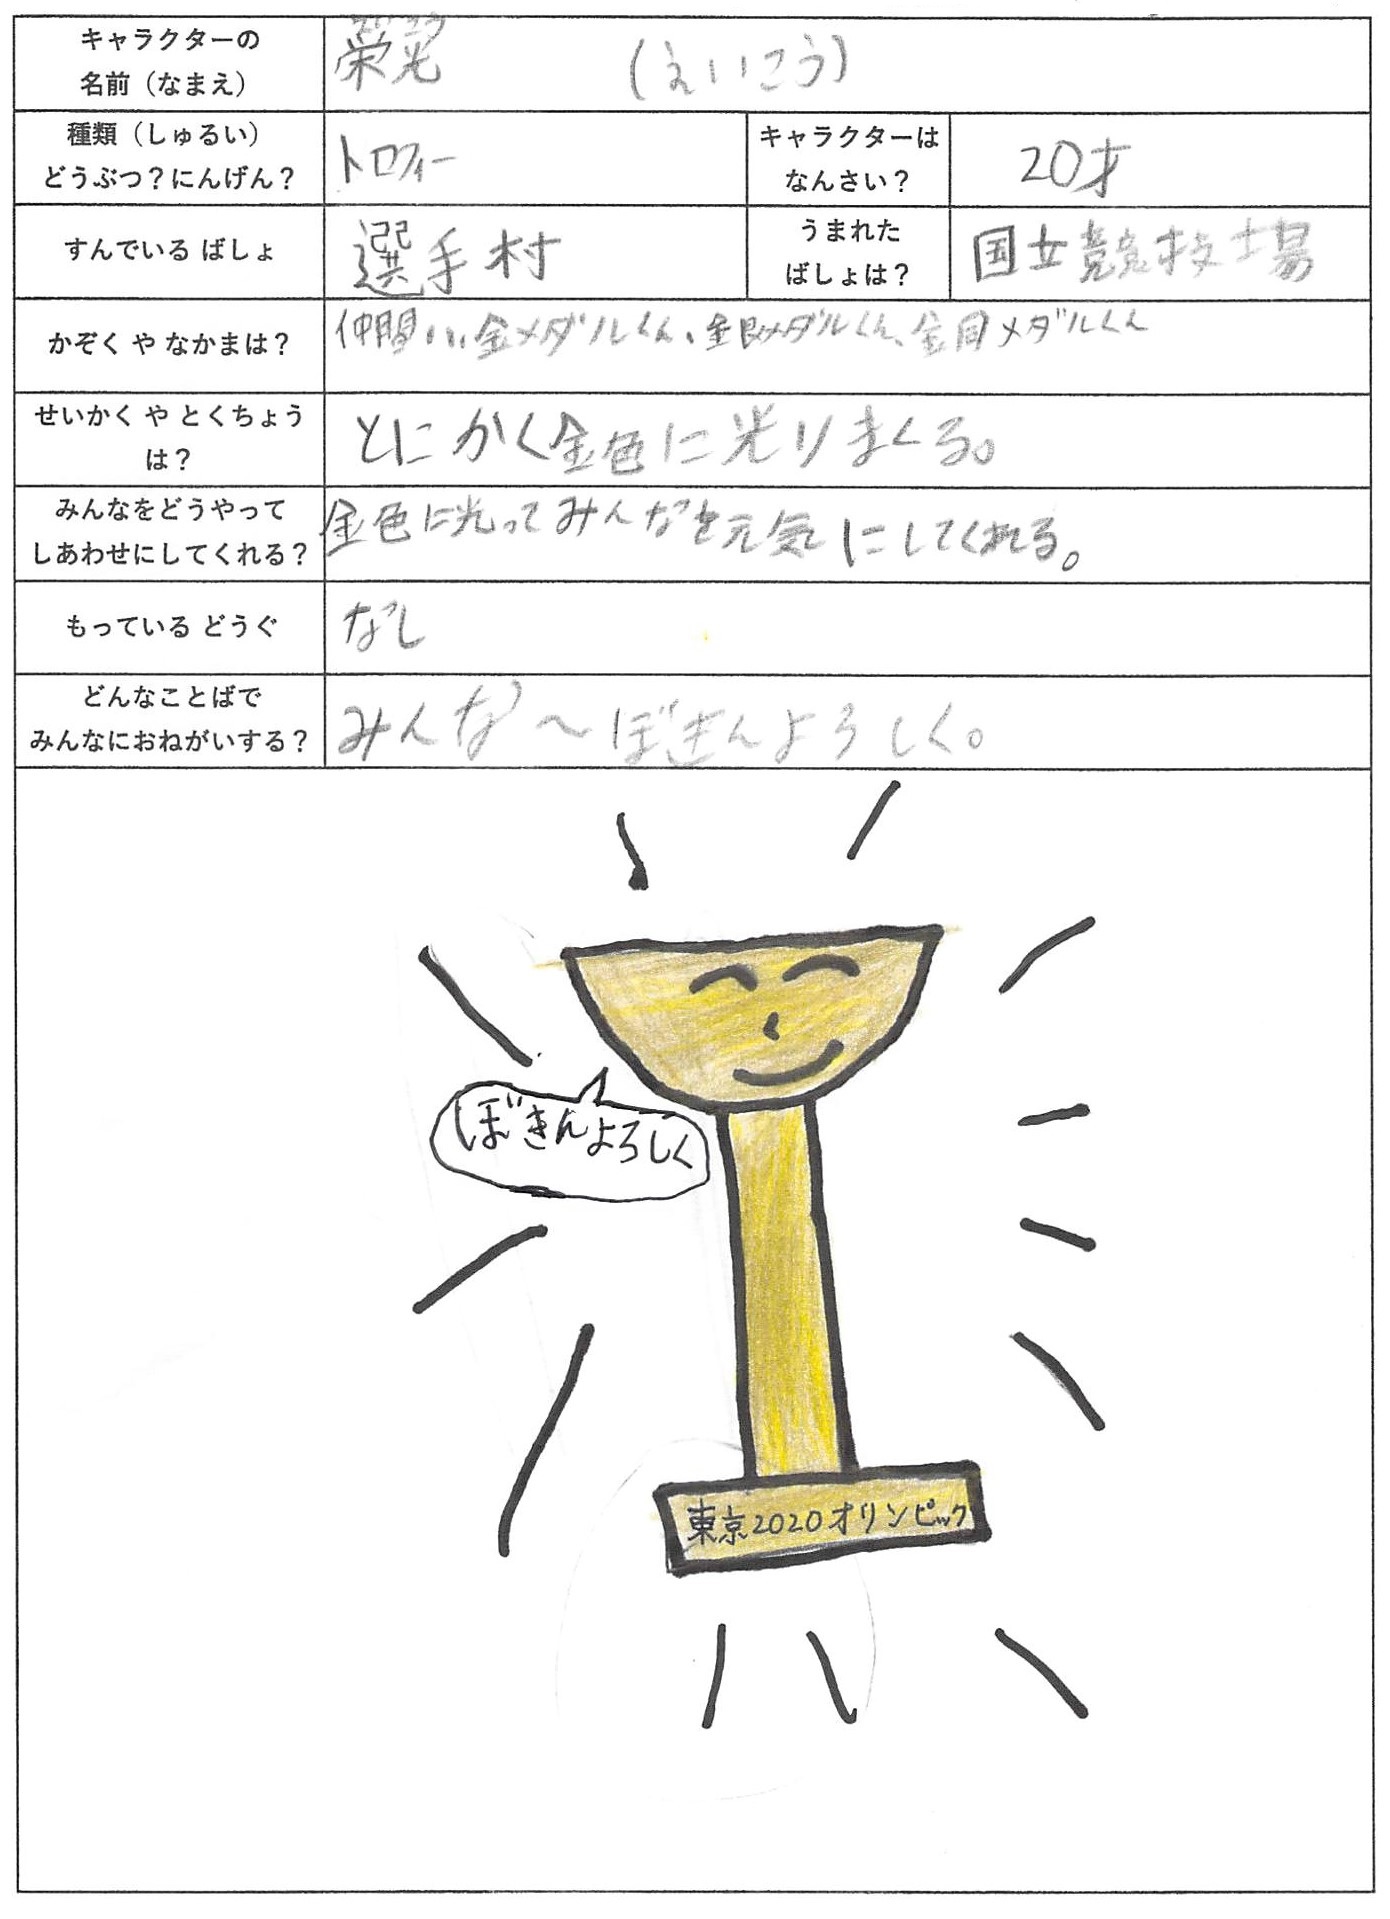 キャラクターの
名前（なまえ）
栄光 （えいこう）
種類（しゅるい）
どうぶつ？にんげん？
トロフィー
キャラクターは
なんさい？
20才
すんでいる ばしょ
選手村
うまれた
ばしょは？
国立競技場
かぞく や なかまは？
仲間…金メダルくん、銀メダルくん、銅メダルくん
せいかく や とくちょう
は？
とにかく金色に光りまくる。
みんなをどうやって
しあわせにしてくれる？
金色に光ってみんなを元気にしてくれる。
もっている どうぐ
なし
どんなことばで
みんなにおねがいする？
みんな〜ぼきんよろしく。
ぼきんよろしく
東京2020オリンピック